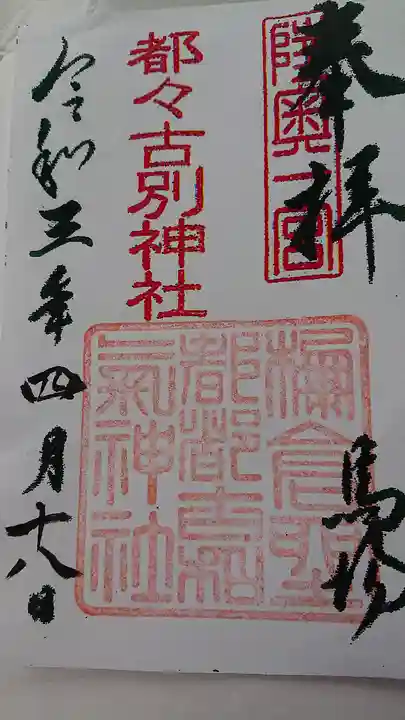 奉拝
陸奥一宮
馬場
都々古別神社
令和三年四月十八日